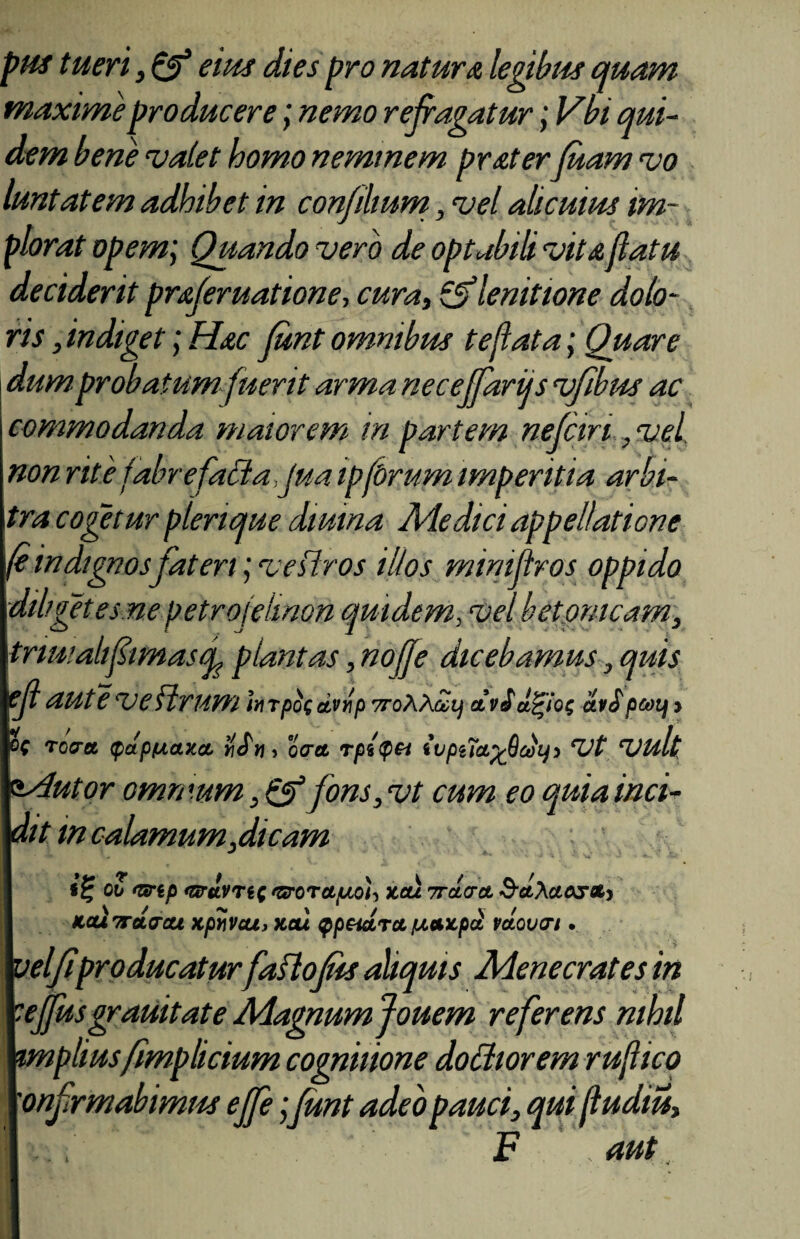 pus tueri, & eius dies pro naturæ legibus quam
maximè producere; nemo refragatur; Vbi qui-
dem benè valet homo neminem præter suam vo
luntatem adhibet in consilium, vel alicuius im-
plorat opem; Quando verò de optabili vitæ statu
deciderit præseruatione, cura, & lenitione dolo-
ris, indiget; Hæc sunt omnibus testata; Quare
dum probatum fuerit arma necessarijs vsibus ac
commodanda maiorem in partem nesciri, vel
non ritè fabrefacta, sua ipsorum imperitia arbi-
tra cogētur plerique diuina Medici appellatione
se indignos fateri; vestros illos ministros oppido
diligētes ne petroselinon quidem, vel betonicam,
triuialissimasq; plantas, nosse dicebamus, quis
est autē vestrum ἰητρὸς ἀνὴρ πολλῶν ἀντάξιος ἀνδρῶν,
ὃς τόσα φάρμακα ᾔδη, ὅσα τρέφει ευρεῖα χθὼν, vt vult
Autor omnium, & fons, vt cum eo quia inci-
dit in calamum, dicam
ἐξ οὗ περ πάντες ποταμοὶ, καὶ πᾶσα θάλασσα,
καὶ πᾶσαι κρῆναι, καὶ φρείατα μακρὰ νάουσι.
vel si producatur fastosus aliquis Menecrates in
cessus grauitate Magnum Jouem referens nihil
amplius simplicium cognitione doctiorem rustico
confirmabimus esse; sunt adeò pauci, qui studiū,
F aut